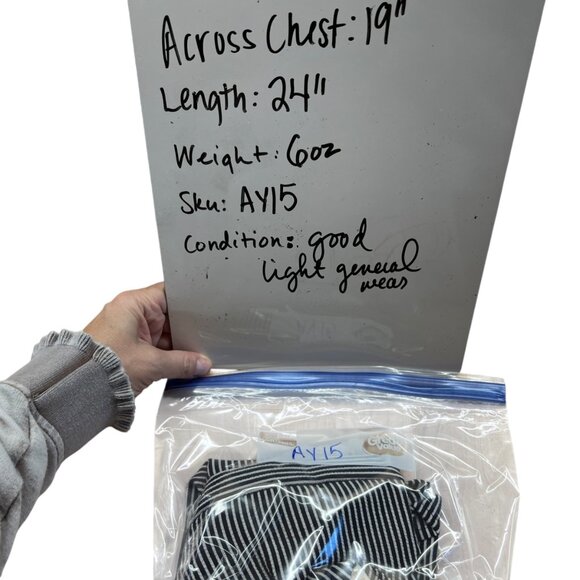 Across Chest: 19"
Length: 24"
Weight: 6oz
Sku: AY15
Condition: good
light general
wear
AY15